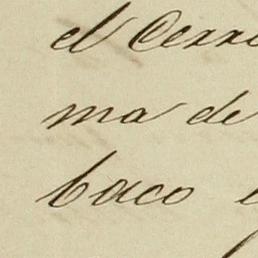 el Cerr
ma de
baco